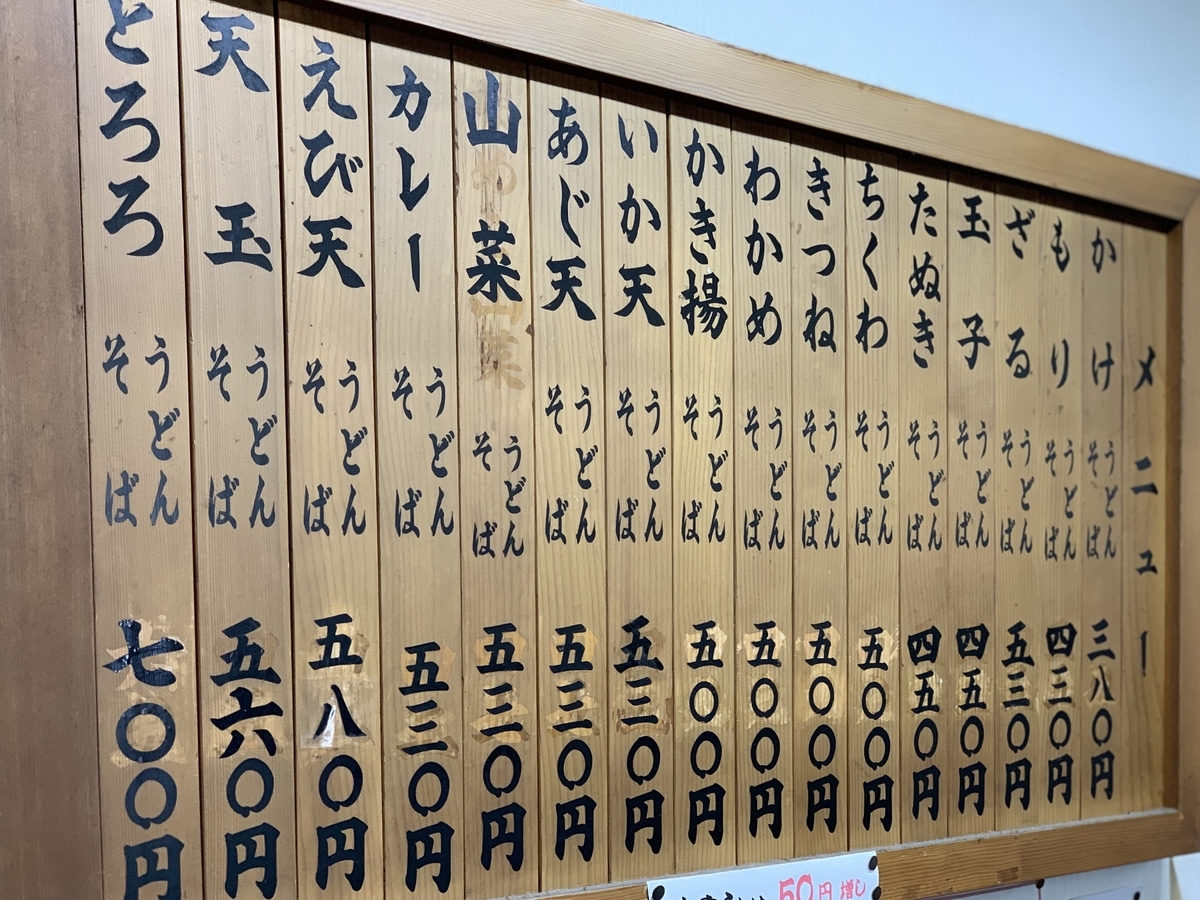 メニュー
かけ うどん そば 三八〇円
もり うどん そば 四三〇円
ざる うどん そば 五三〇円
玉子 うどん そば 四五〇円
たぬき うどん そば 四五〇円
ちくわ うどん そば 五〇〇円
きつね うどん そば 五〇〇円
わかめ うどん そば 五〇〇円
かき揚 うどん そば 五〇〇円
いか天 うどん そば 五三〇円
あじ天 うどん そば 五三〇円
山菜 うどん そば 五三〇円
カレー うどん そば 五三〇円
えび天 うどん そば 五八〇円
天玉 うどん そば 五六〇円
とろろ うどん そば 七〇〇円
50円増し